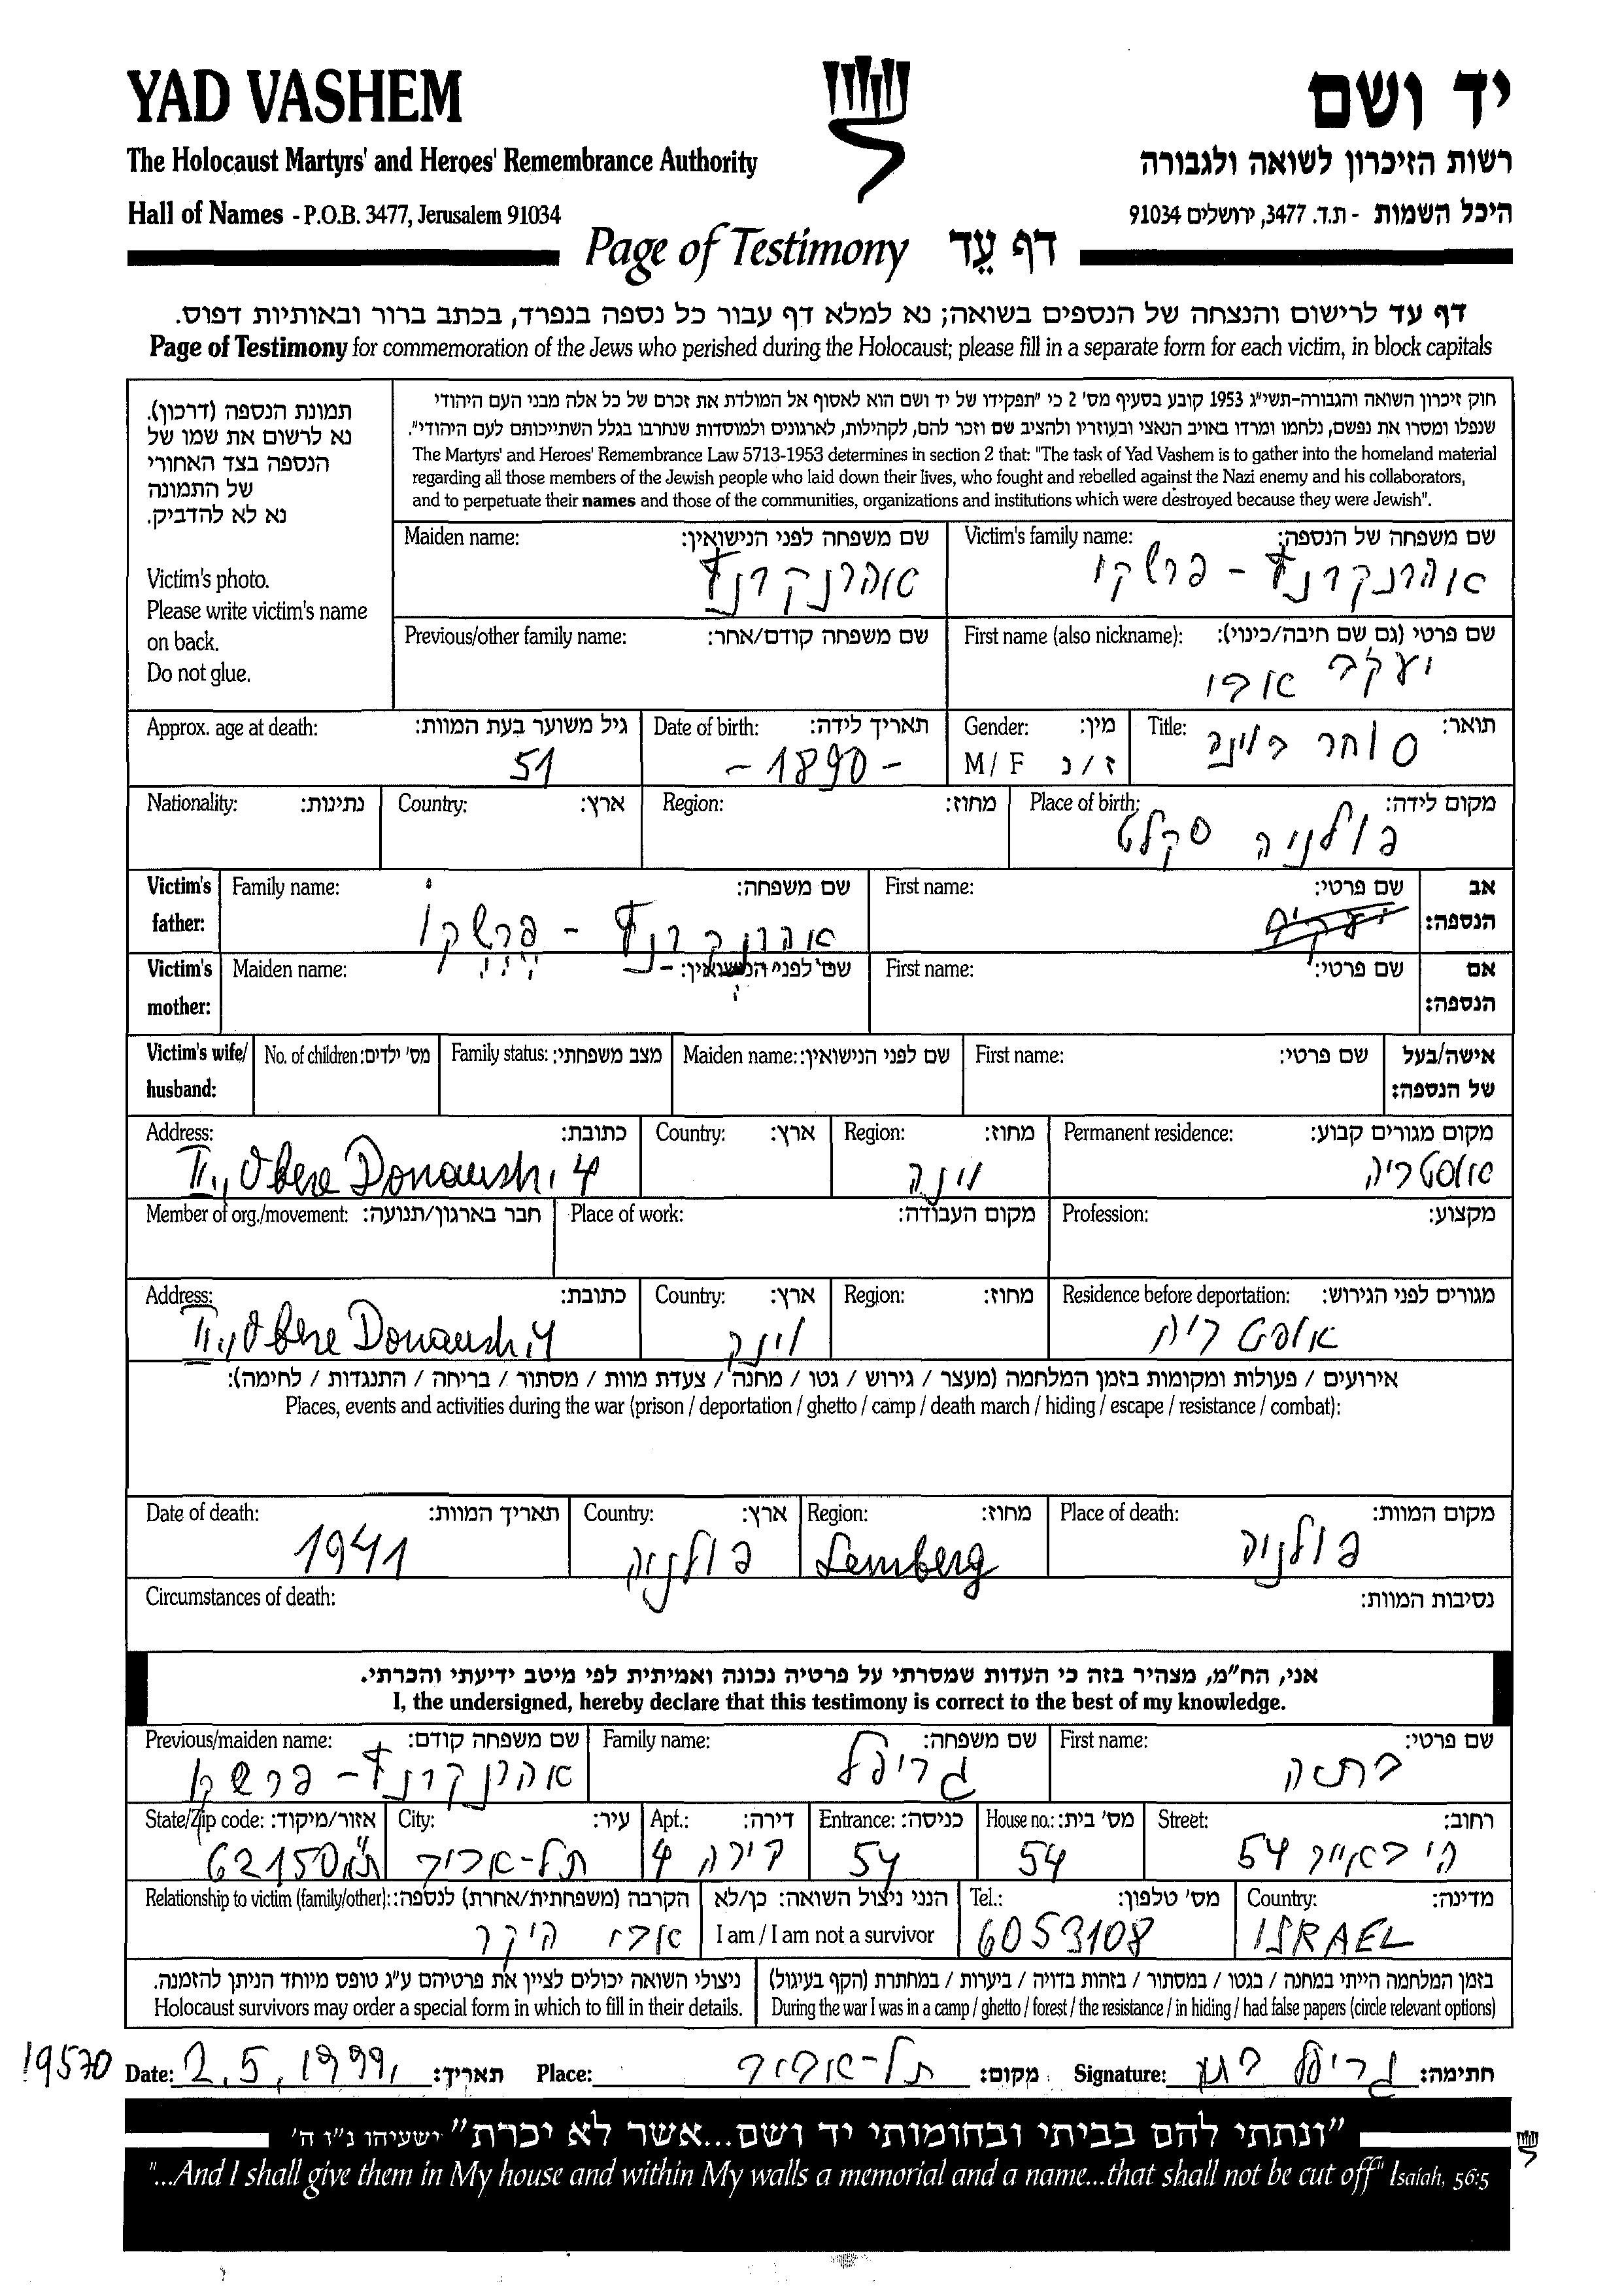 YAD VASHEM
יד ושם
The Holocaust Martyrs' and Heroes' Remembrance Authority
רשות הזיכרון לשואה ולגבורה
Hall of Names - P.O.B. 3477, Jerusalem 91034
היכל השמות - ת.ד. 3477, ירושלים 91034
Page of Testimony דף עֵד
דף עד לרישום והנצחה של הנספים בשואה; נא למלא דף עבור כל נספה בנפרד, בכתב ברור ובאותיות דפוס.
Page of Testimony for commemoration of the Jews who perished during the Holocaust; please fill in a separate form for each victim, in block capitals
תמונת הנספה (דרכון).
נא לרשום את שמו של
הנספה בצד האחורי
של התמונה
נא לא להדביק.
Victim's photo.
Please write victim's name
on back.
Do not glue.
חוק זיכרון השואה והגבורה-תשי"ג 1953 קובע בסעיף מס' 2 כי "תפקידו של יד ושם הוא לאסוף אל המולדת את זכרם של כל אלה מבני העם היהודי
שנפלו ומסרו את נפשם, נלחמו ומרדו באויב הנאצי ובעוזריו ולהציב שם וזכר להם, לקהילות, לארגונים ולמוסדות שנחרבו בגלל השתייכותם לעם היהודי".
The Martyrs' and Heroes' Remembrance Law 5713-1953 determines in section 2 that: "The task of Yad Vashem is to gather into the homeland material
regarding all those members of the Jewish people who laid down their lives, who fought and rebelled against the Nazi enemy and his collaborators,
and to perpetuate their names and those of the communities, organizations and institutions which were destroyed because they were Jewish".
Victim's family name: שם משפחה של הנספה:
אהרנקרנץ - פרשקו
Maiden name: שם משפחה לפני הנישואין:
אהרנקרנץ
First name (also nickname): שם פרטי (גם שם חיבה/כינוי):
יעקב אבי
Previous/other family name: שם משפחה קודם/אחר:
Title: תואר:
סוחר בוינה
Gender: מין:
M / F ז / נ
Date of birth: תאריך לידה:
- 1890 -
Approx. age at death: גיל משוער בעת המוות:
51
Place of birth: מקום לידה:
פולניה סקלט
Region: מחוז:
Country: ארץ:
Nationality: נתינות:
Victim's father: אב הנספה:
First name: שם פרטי:
Family name: שם משפחה:
אהרנקרנץ - פרשקו
Victim's mother: אם הנספה:
First name: שם פרטי:
Maiden name: שם לפני הנישואין:
Victim's wife/ husband: אישה/בעל של הנספה:
First name: שם פרטי:
Maiden name: שם לפני הנישואין:
Family status: מצב משפחתי:
No. of children: מס' ילדים:
Permanent residence: מקום מגורים קבוע:
אוסטריה
Region: מחוז:
וינה
Country: ארץ:
Address: כתובת:
II,, Obere Donaustr, 4
Profession: מקצוע:
Place of work: מקום העבודה:
Member of org./movement: חבר בארגון/תנועה:
Residence before deportation: מגורים לפני הגירוש:
אוסטריה
Region: מחוז:
Country: ארץ:
וינה
Address: כתובת:
II,, Obere Donaustr, 4
אירועים / פעולות ומקומות בזמן המלחמה (מעצר / גירוש / גטו / מחנה / צעדת מוות / מסתור / בריחה / התנגדות / לחימה):
Places, events and activities during the war (prison / deportation / ghetto / camp / death march / hiding / escape / resistance / combat):
Place of death: מקום המוות:
פולניה
Region: מחוז:
Lemberg
Country: ארץ:
פולניה
Date of death: תאריך המוות:
1941
Circumstances of death: נסיבות המוות:
אני, הח"מ, מצהיר בזה כי העדות שמסרתי על פרטיה נכונה ואמיתית לפי מיטב ידיעתי והכרתי.
I, the undersigned, hereby declare that this testimony is correct to the best of my knowledge.
First name: שם פרטי:
Family name: שם משפחה:
Previous/maiden name: שם משפחה קודם:
אהרנקרנץ - פרשקו
Street: רחוב:
ה' באייר 54
House no.: מס' בית:
54
Entrance: כניסה:
54
Apt.: דירה:
דירה 4
City: עיר:
תל-אביב
State/Zip code: אזור/מיקוד:
ת"א 62150
Country: מדינה:
ISRAEL
Tel.: מס' טלפון:
6053108
הנני ניצול השואה: כן/לא
I am / I am not a survivor
Relationship to victim (family/other): הקרבה (משפחתית/אחרת) לנספה:
אבי היקר
בזמן המלחמה הייתי במחנה / בגטו / במסתור / בזהות בדויה / ביערות / במחתרת (הקף בעיגול)
During the war I was in a camp / ghetto / forest / the resistance / in hiding / had false papers (circle relevant options)
ניצולי השואה יכולים לציין את פרטיהם ע"ג טופס מיוחד הניתן להזמנה.
Holocaust survivors may order a special form in which to fill in their details.
19570
Date: 2.5.1999 תאריך:
Place: תל-אביב מקום:
Signature: חתימה:
"ונתתי להם בביתי ובחומותי יד ושם...אשר לא יכרת" ישעיהו נ"ו ה'
"...And I shall give them in My house and within My walls a memorial and a name...that shall not be cut off" Isaiah, 56:5